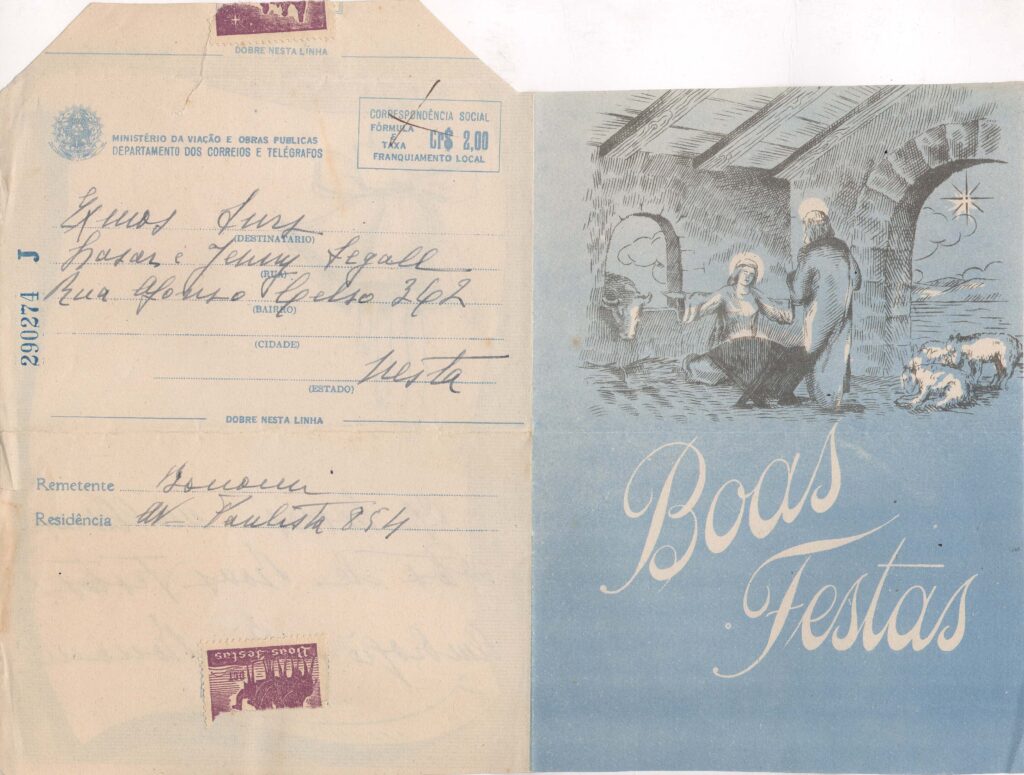 DOBRE NESTA LINHA
MINISTÉRIO DA VIAÇÃO E OBRAS PUBLICAS
DEPARTAMENTO DOS CORREIOS E TELÉGRAFOS
CORRESPONDÊNCIA SOCIAL
FÓRMULA
E
TAXA
CR$ 2,00
FRANQUIAMENTO LOCAL
Exmos Snrs
(DESTINATÁRIO)
Lasar e Jenny Segall
(RUA)
Rua Afonso Celso 362
(BAIRRO)
(CIDADE)
Nesta
(ESTADO)
290274 J
DOBRE NESTA LINHA
Remetente Bonomi
Residência Av Paulista 854
Boas Festas
Boas
Festas